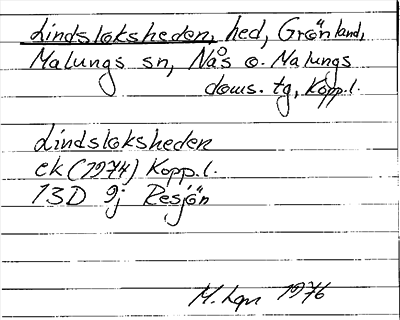 Lindsloksheden, hed, Grönland,
Malungs sn, Nås o. Malungs
doms. tg, Kopp.l.
Lindsloksheden
ek (1974) Kopp.l.
13D 9j Resjön
M. Lgn 1976